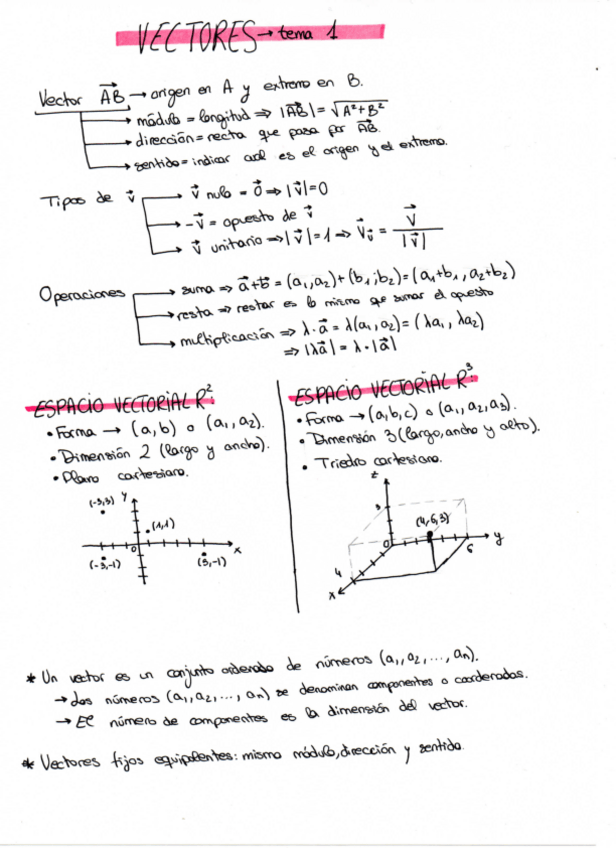 VECTORES → tema 1
Vector \vec{AB} → origen en A y extremo en B.
→ módulo = longitud ⇒ |\vec{AB}| = √(A²+B²)
→ dirección = recta que pasa por \vec{AB}.
→ sentido = indicar cual es el origen y el extremo.
Tipos de \vec{v}
→ \vec{v} nulo = \vec{0} ⇒ |\vec{v}|=0
→ -\vec{v} = opuesto de \vec{v}
→ \vec{v} unitario ⇒ |\vec{v}|=1 ⇒ \vec{v}_{\vec{v}} = \vec{v} / |\vec{v}|
Operaciones
→ suma ⇒ \vec{a}+\vec{b} = (a₁,a₂)+(b₁;b₂)=(a₁+b₁, a₂+b₂)
→ resta ⇒ restar es lo mismo que sumar el opuesto
→ multiplicación ⇒ λ·\vec{a} = λ(a₁,a₂)=(λa₁, λa₂)
⇒ |λ\vec{a}| = λ·|\vec{a}|
ESPACIO VECTORIAL R²:
• Forma → (a,b) o (a₁,a₂).
• Dimensión 2 (largo y ancho).
• Plano cartesiano.
(-3,3) y
(1,1)
0 x
(-3,-1) (5,-1)
ESPACIO VECTORIAL R³:
• Forma → (a,b,c) o (a₁,a₂,a₃).
• Dimensión 3 (largo, ancho y alto).
• Triedro cartesiano.
z
3
(4,6,3)
0 y
6
4
x
* Un vector es un conjunto ordenado de números (a₁,a₂,...,aₙ).
→ Los números (a₁,a₂,...,aₙ) se denominan componentes o coordenadas.
→ El número de componentes es la dimensión del vector.
* Vectores fijos equipolentes: mismo módulo, dirección y sentido.